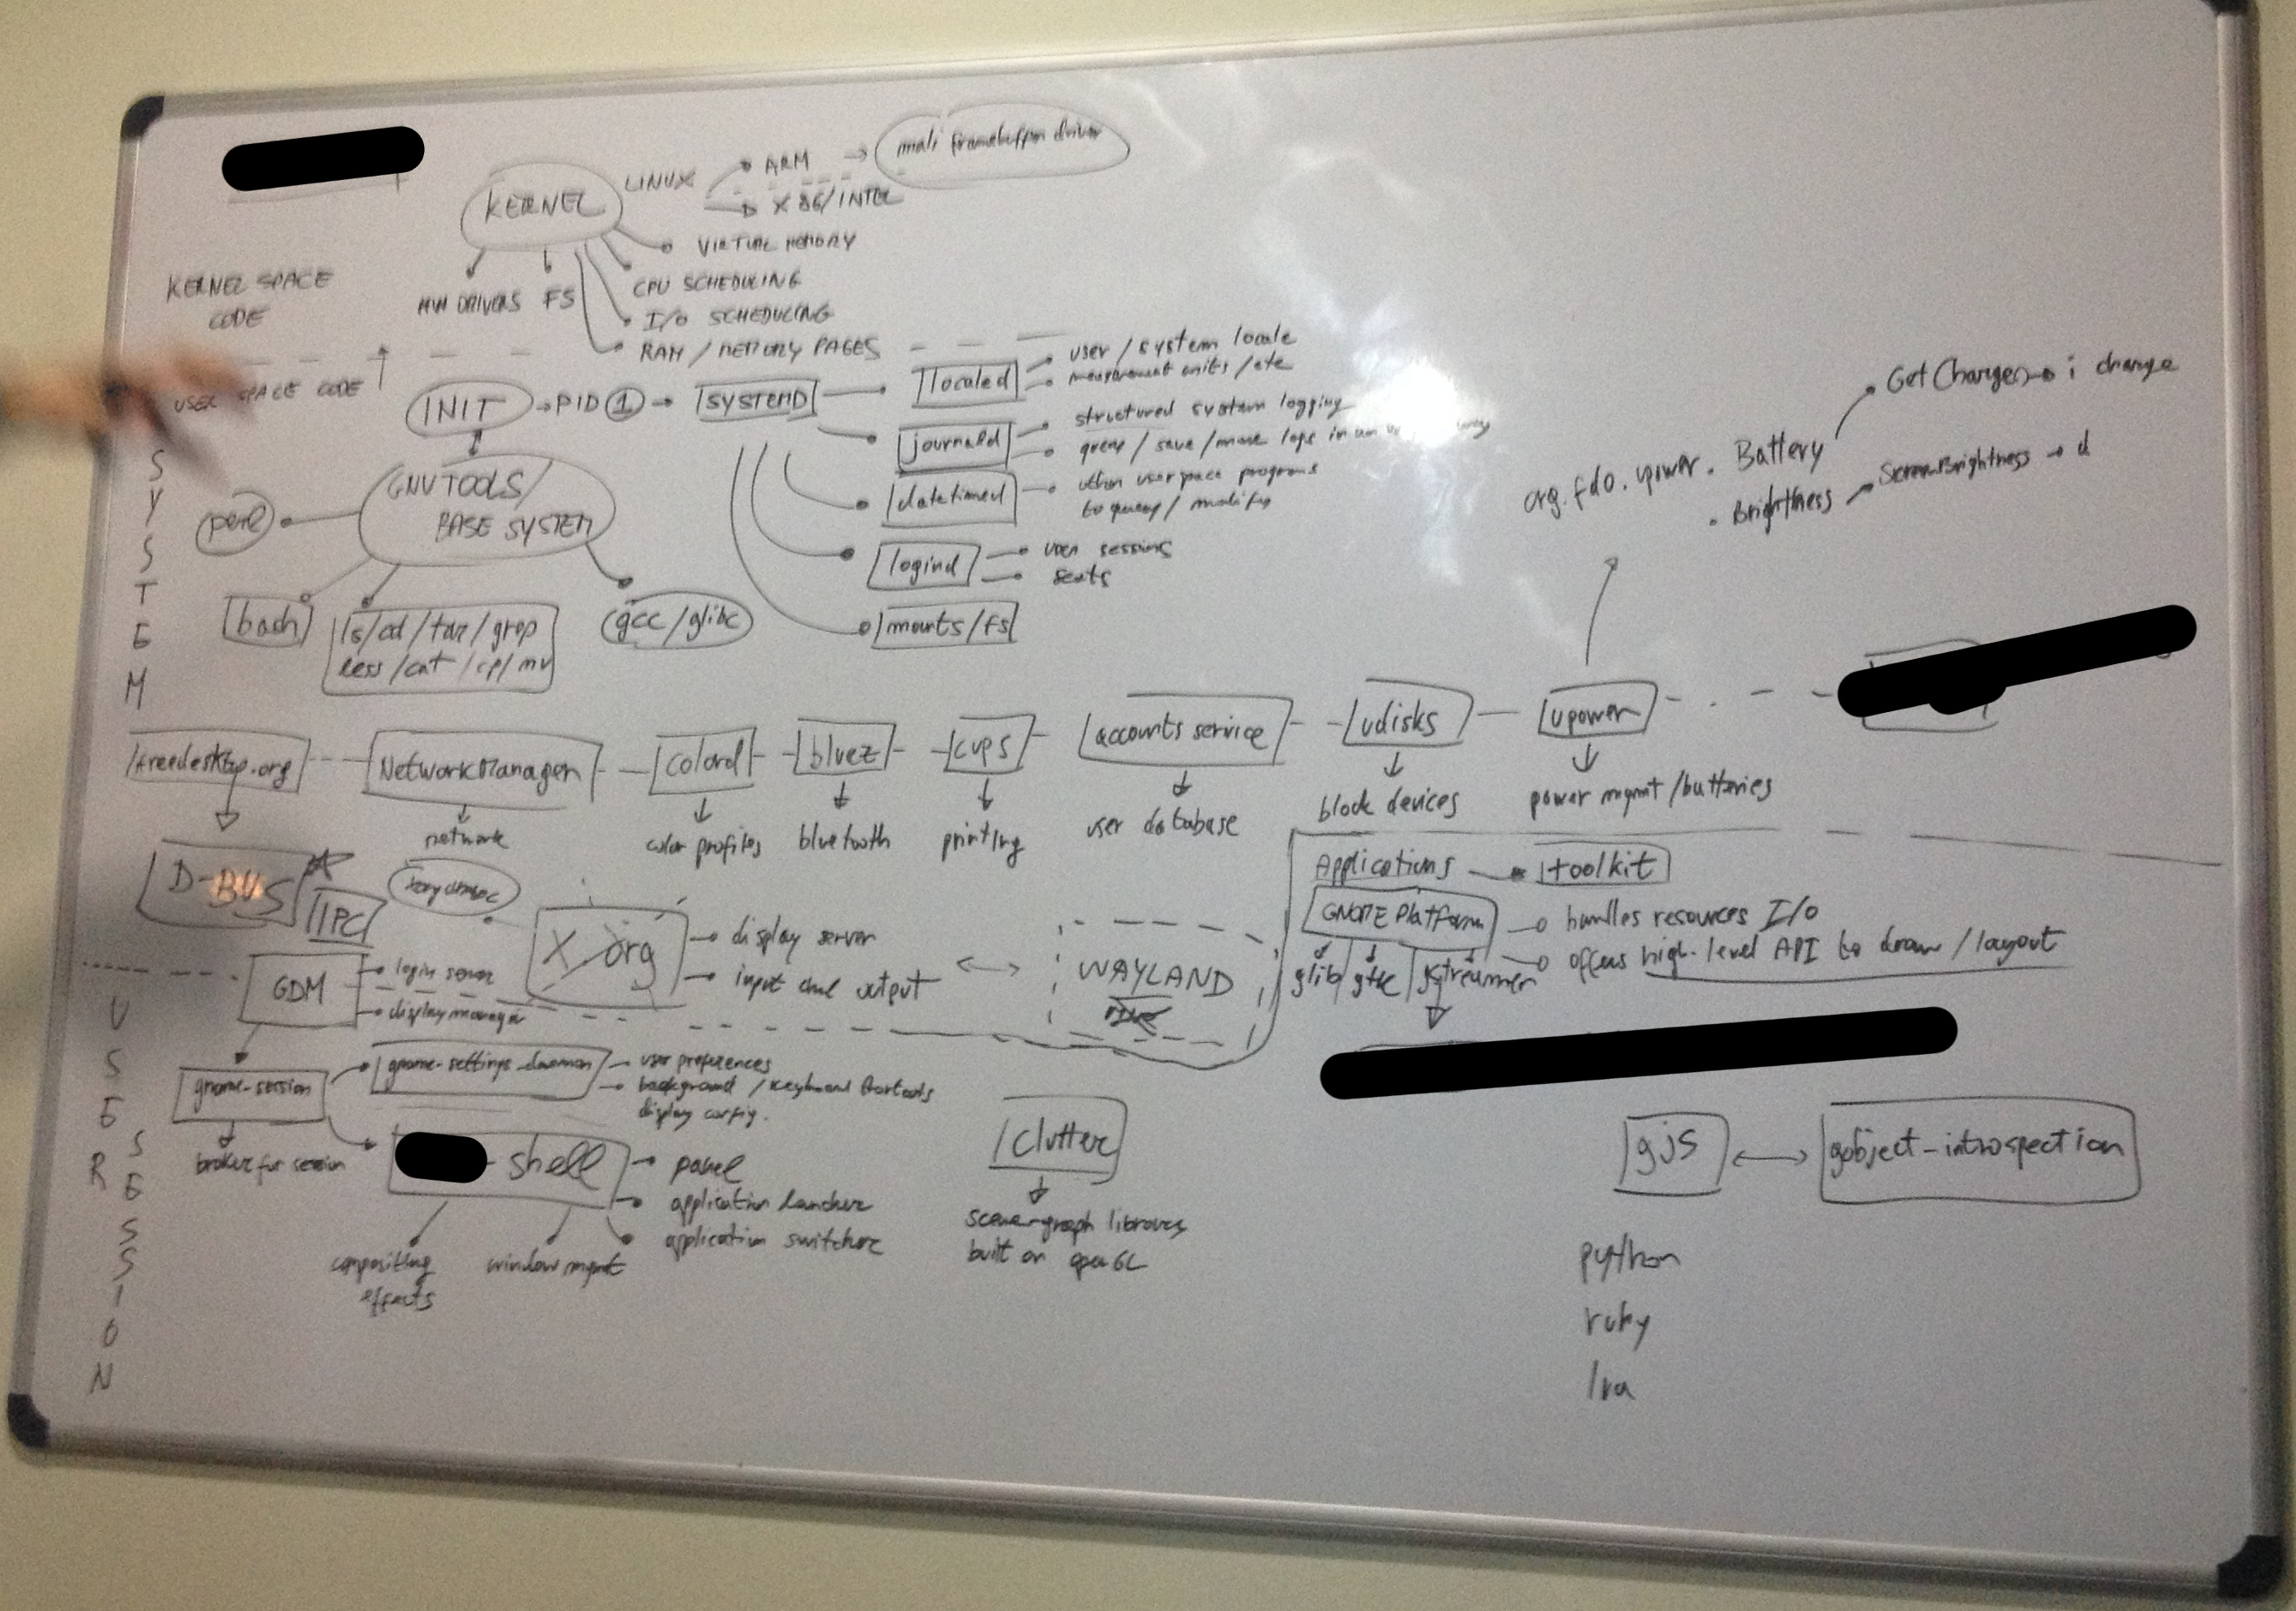 KERNEL
LINUX
ARM
mali framebuffer driver
X86/INTEL
VIRTUAL MEMORY
CPU SCHEDULING
I/O SCHEDULING
RAM / MEMORY PAGES
HW DRIVERS
FS
KERNEL SPACE
CODE
USER SPACE CODE
SYSTEM
INIT
PID 1
SYSTEMD
localed
user / system locale
measurement units / etc
journald
structured system logging
query / save / move logs in an
datetimed
other userspace programs
to query / modify
logind
user sessions
seats
mounts/fs
GNU TOOLS/
BASE SYSTEM
perl
bash
ls/cd/tar/grep
less/cat/cp/mv
gcc/glibc
org.fdo.upower.Battery
GetCharge() i change
. Brightness
ScreenBrightness d
freedesktop.org
NetworkManager
network
colord
color profiles
bluez
bluetooth
cups
printing
accounts service
user database
udisks
block devices
upower
power mgmt/batteries
D-BUS
IPC
X.org
display server
input and output
WAYLAND
Applications
toolkit
GNOME Platform
handles resources I/O
offers high-level API to draw / layout
glib/gtk/gstreamer
GDM
login server
display manager
USER SESSION
gnome-session
broker for session
gnome-settings-daemon
user preferences
background / keyboard shortcuts
display config.
- shell
panel
application launcher
application switcher
compositing
effects
window mgmt
Clutter
scene-graph library
built on openGL
gjs
gobject-introspection
python
ruby